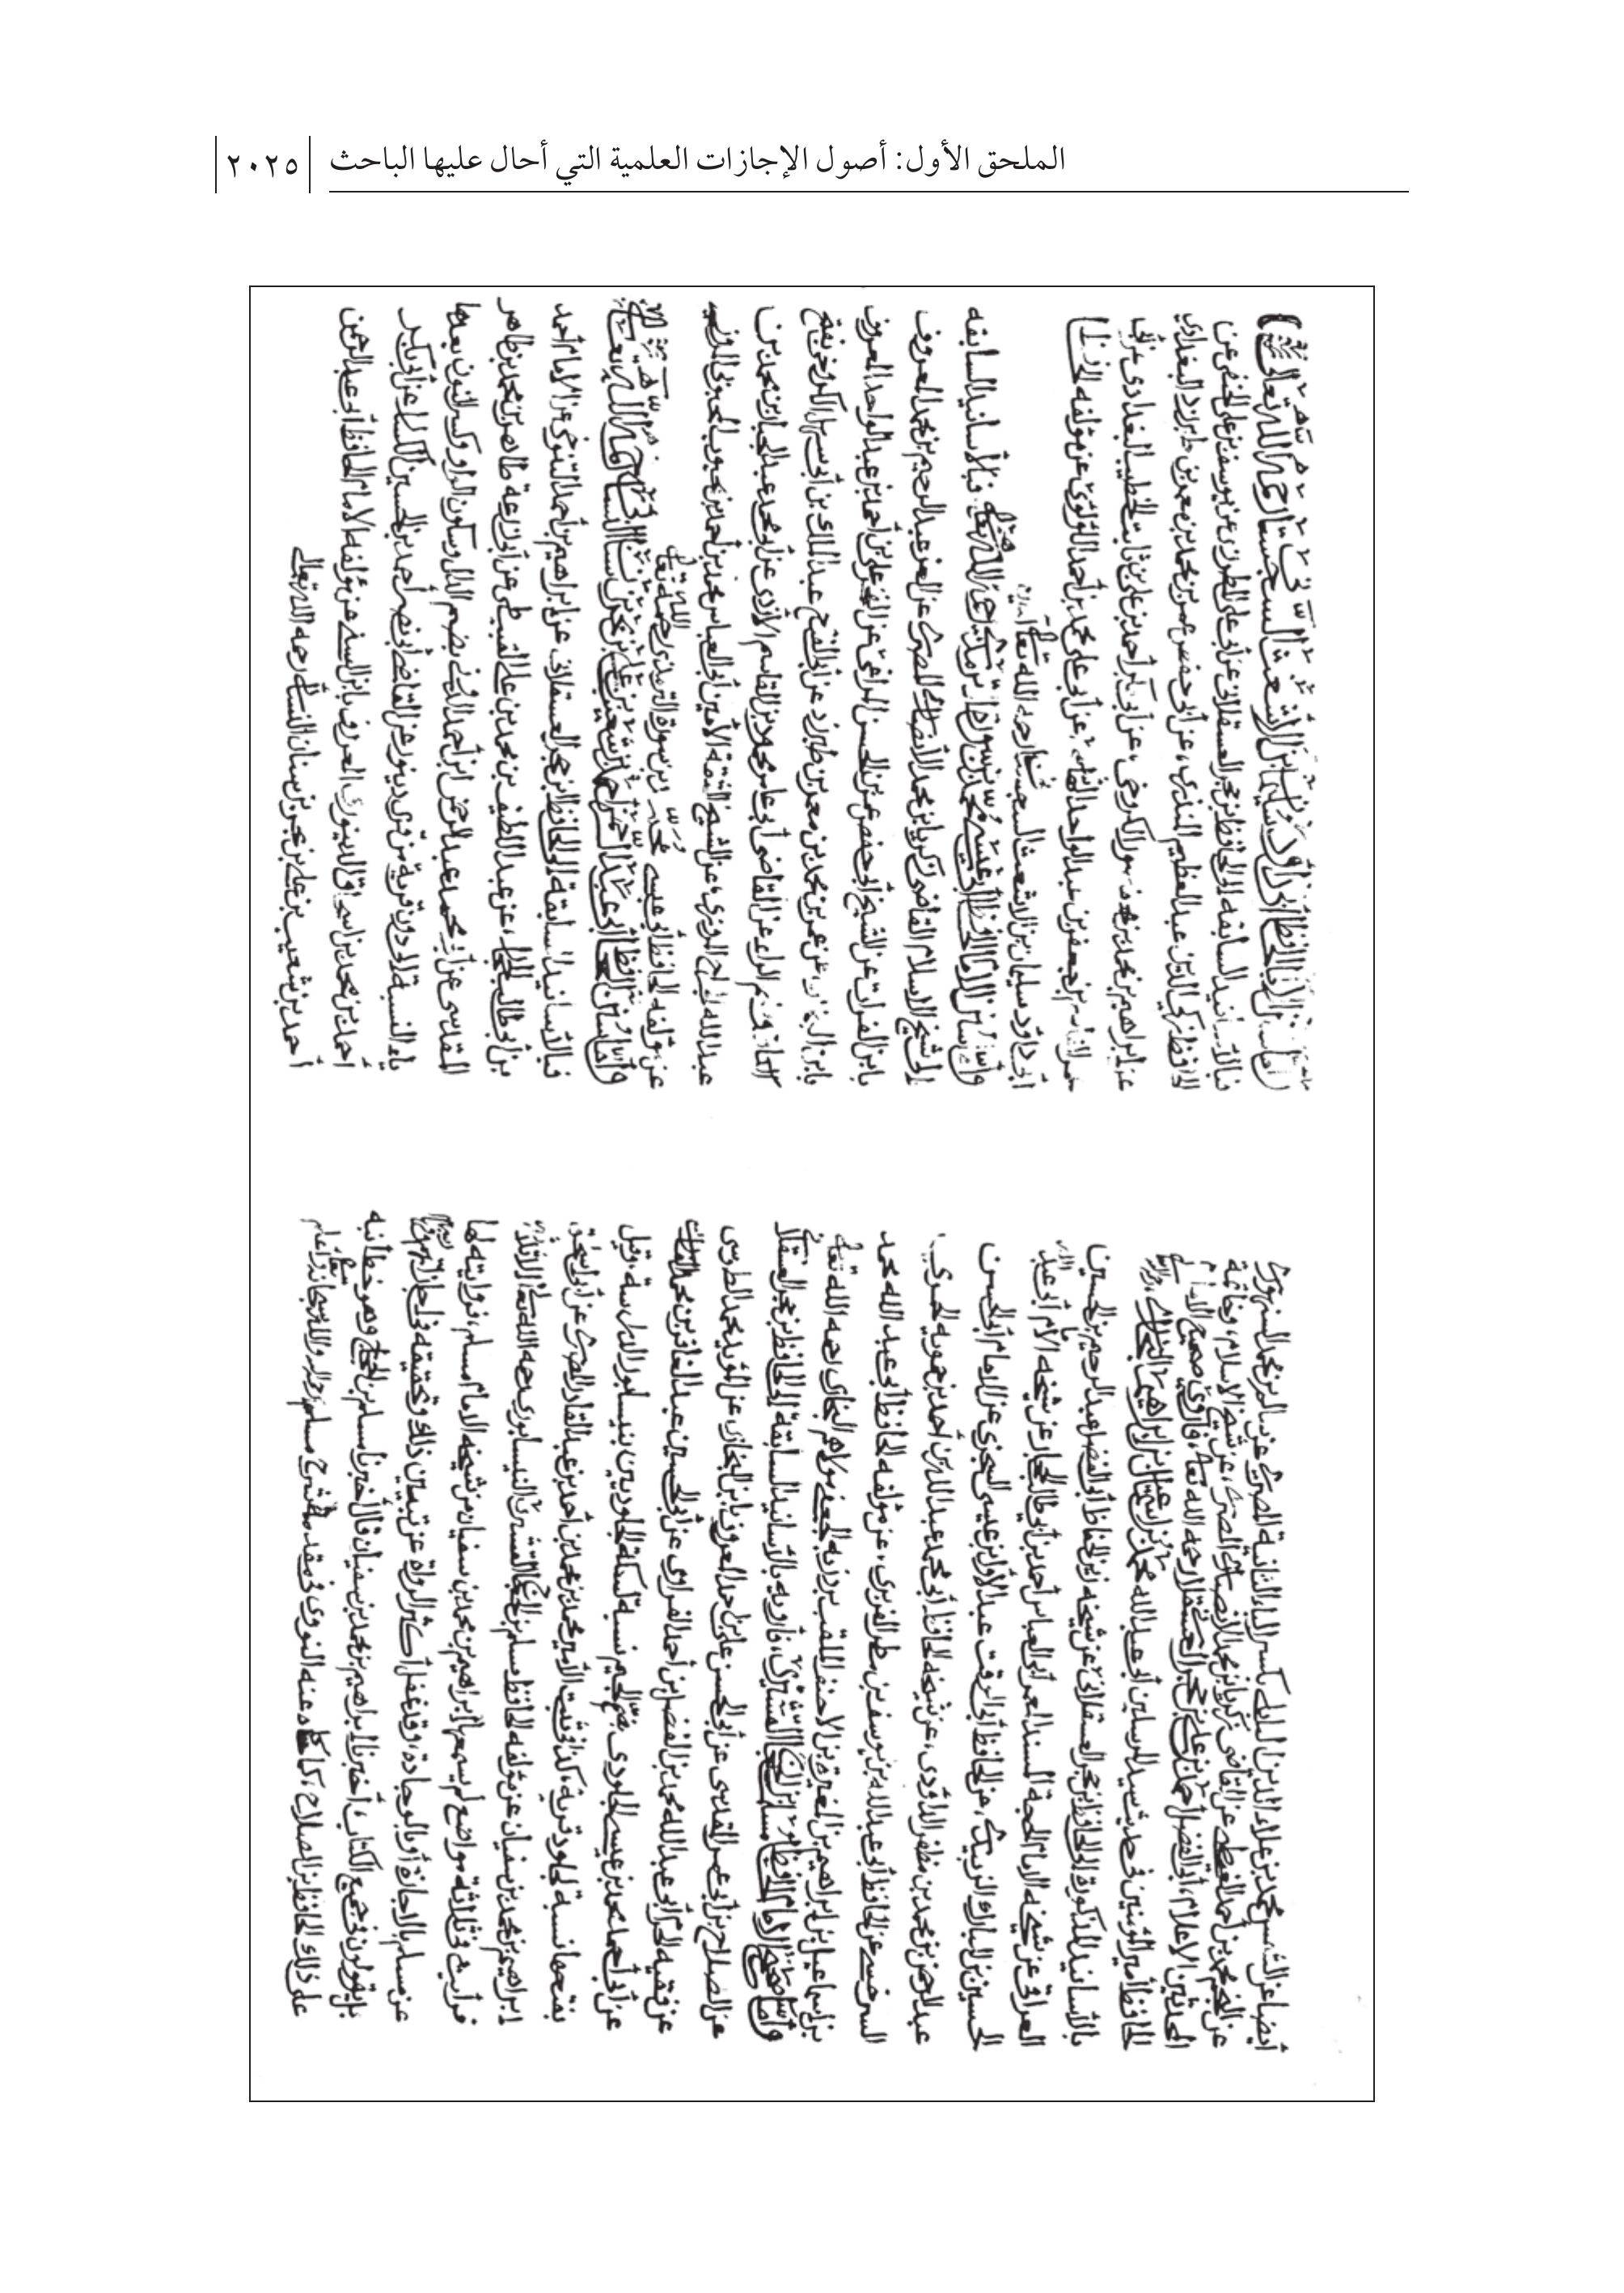 الملحق الأول: أصول الإجازات العلمية التي أحال عليها الباحث ٢٠٢٥
أيضا عن الشمس محمد بن علاء الدين البابلي بكسر الباء الثانية المصري عن سالم بن محمد السنهوري
عن النجم محمد بن أحمد الغيطي عن القاضي زكريا بن محمد الأنصاري المصري، عن شيخ الإسلام، وخاتمة
المحدثين الاعلام، أبي الفضل أحمد بن علي بن حجر العسقلاني رحمه الله تعالى، فأروي صحيح الامام
الحافظ أمير المؤمنين في حديث سيد المرسلين أبي عبد الله محمد بن إسماعيل بن إبراهيم البخاري
بالأسانيد المذكورة إلى الحافظ ابن حجر العسقلاني عن شيخه زين الحفاظ أبي الفضل عبد الرحيم بن الحسين
العراقي عن شيخه الامام الحجة المسند المعمر أبي العباس أحمد بن أبي طالب الحجار عن شيخه الأمام أبي عبد الله
الحسين بن المبارك الزبيدي، عن الحافظ أبي الوقت عبد الأول بن عيسى السجزي عن الامام أبي الحسن
عبد الرحمن بن محمد بن مظفر الداودي، عن شيخه الحافظ أبي محمد عبد الله بن أحمد بن حمويه الحموي
السرخسي عن الحافظ أبي عبد الله بن يوسف بن مطر الفربري، عن مؤلفه الحافظ أبي عبد الله محمد
بن إسماعيل بن إبراهيم بن المغيرة بن الاحنف الملقب بردزبه الجعفي مولاهم البخاري رحمه الله تعالى
وأما صحيح الامام الحافظ مسلم بن الحجاج القشيري، فأرويه بالأسانيد السابقة إلى الحافظ ابن حجر العسقلاني
عن الصلاح بن أبي عمر المقدسي عن أبي الحسن علي بن أحمد المعروف بابن البخاري عن المؤيد محمد الطوسي
عن فقيه الحرم أبي عبد الله محمد بن الفضل بن أحمد الفراوي عن أبي الحسين عبد الغافر بن محمد
عن أبي أحمد محمد بن عيسى الجلودي بضم الجيم نسبة لسكة الجلوديين بنيسابور الدارسة، وقيل
بفتحها نسبة لجلود قرية، كذا في ثبت الأمير محمد بن محمد بن أحمد بن عبد القادر المصري عن أبي إسحق
إبراهيم بن محمد بن سفيان عن مؤلفه الحافظ مسلم بن الحجاج القشيري النيسابوري رحمه الله
في ثلاثة مواضع لم يسمعها إبراهيم بن محمد بن سفيان من شيخه الامام مسلم، فروايته لها
عن مسلم بالاجازة أو بالوجادة، وقد غفل أكثر الرواة عن تبيين ذلك وتحقيقه في إجازاتهم
بل يقولون في جميع الكتاب، أخبرنا إبراهيم بن محمد بن سفيان قال أخبرنا مسلم بن الحجاج وهو خطأ نبه
على ذلك الحافظ ابن الصلاح، كما حكاه عنه النووي في مقدمة شرح مسلم والله سبحانه وتعالى أعلم
الحافظ أبي داود سليمان بن الأشعث السجستاني رحمه الله تعالى
السابقة إلى الحافظ ابن حجر العسقلاني عن أبي علي المطرزي عن يوسف بن علي الحنفي عن
الحافظ زكي الدين عبد العظيم المنذري، عن أبي حفص عمر بن محمد بن معمر بن طبرزد البغدادي
عن إبراهيم بن محمد بن منصور الكروخي، عن أبي بكر أحمد بن علي بن ثابت الخطيب البغدادي عن أبي
عمر القاسم بن جعفر بن عبد الواحد الهاشمي، عن أبي علي محمد بن أحمد اللؤلؤي عن مؤلفه
أبي داود سليمان بن الأشعث السجستاني رحمه الله تعالى
وأما سنن الامام الحافظ أبي عيسى محمد بن سورة الترمذي رحمه الله فبالأسانيد السابقه
إلى شيخ الاسلام القاضي زكريا بن محمد الأنصاري المصري عن العز عبد الرحيم بن محمد المعروف
بابن الفرات عن الشيخ أبي حفص عمر بن الحسن المراغي عن الفخر علي بن أحمد بن عبد الواحد المعروف
بابن البخاري، عن عمر بن محمد بن معمر بن طبرزد عن أبي الفتح عبد الملك بن أبي سهل الكروخي بفتح
الكاف وضم الراء عن القاضي أبي عامر محمود بن القاسم الأزدي عن أبي محمد عبد الجبار بن محمد بن
عبد الله الجراحي المروزي، عن الشيخ الثقة الأمين أبي العباس محمد بن أحمد بن محبوب المحبوبي المروزي
عن مؤلفه الحافظ أبي عيسى محمد بن سورة الترمذي رحمه الله تعالى
وأما سنن الحافظ أبي عبد الرحمن أحمد بن شعيب بن علي بن بحر بن سنان النسائي رحمه الله
فبالأسانيد السابقة إلى الحافظ ابن حجر العسقلاني عن إبراهيم بن أحمد التنوخي عن الامام أحمد
بن أبي طالب الحجار، عن عبد اللطيف بن محمد بن علي القبيطي عن أبي زرعة طاهر بن محمد بن طاهر
المقدسي عن أبي محمد عبد الرحمن ابن أحمد الدوني بضم الدال وسكون الواو وكسر النون بعدها
ياء النسبة إلى دون قرية من قرى دينور عن القاضي أبي نصر أحمد بن الحسين الكسار عن أبي بكر
أحمد بن محمد بن إسحاق الدينوري المعروف بابن السني عن مؤلفه الامام الحافظ أبي عبد الرحمن
أحمد بن شعيب بن علي بن بحر بن سنان النسائي رحمه الله تعالى